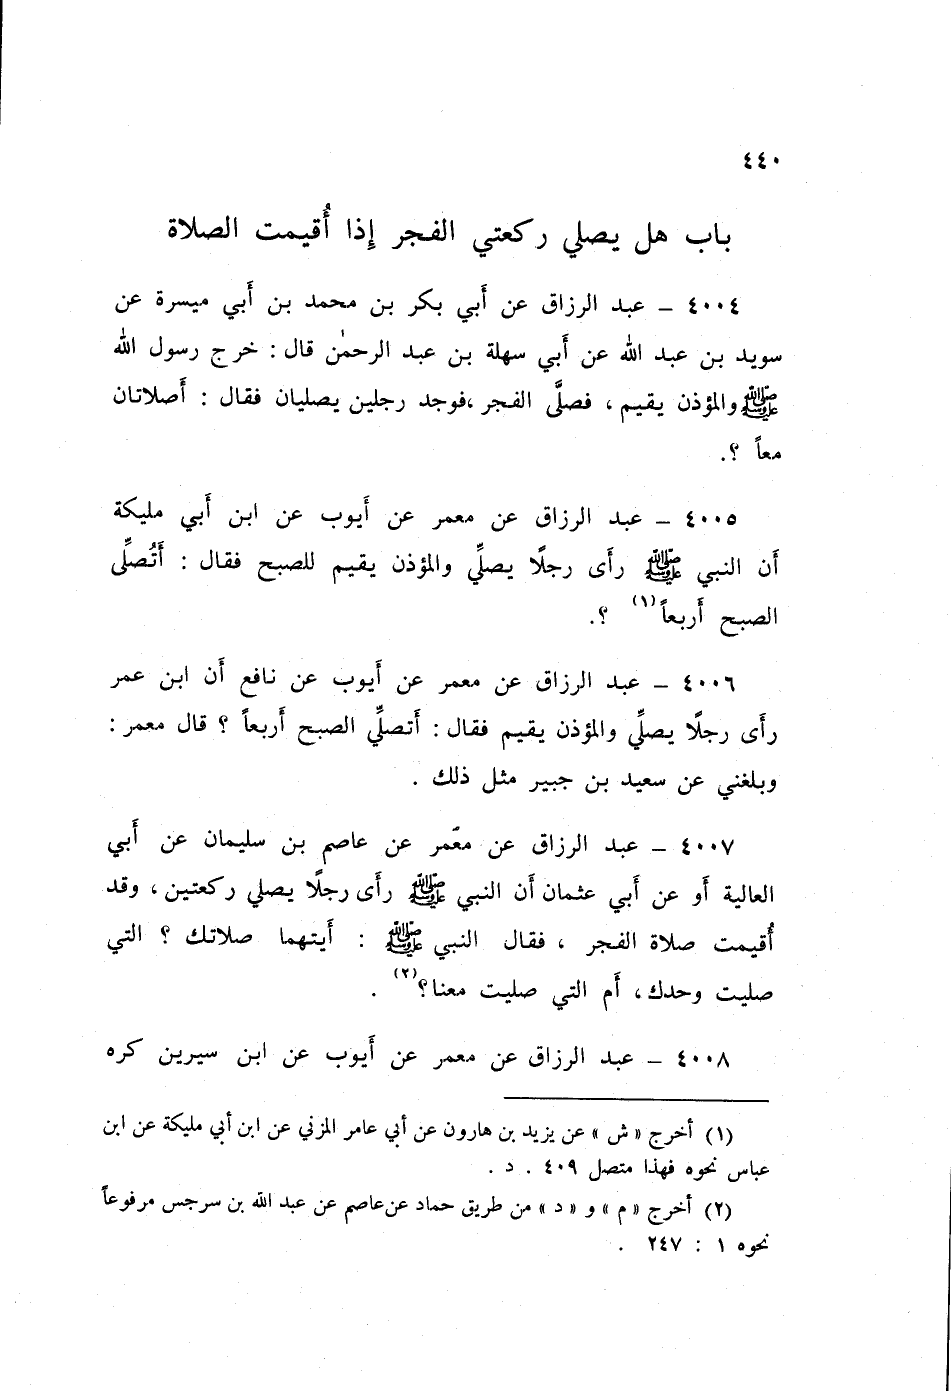 ٤٤٠
باب هل يصلي ركعتي الفجر إذا أُقيمت الصلاة
٤٠٠٤ – عبد الرزاق عن أَبي بكر بن محمد بن أَبي ميسرة عن
سويد بن عبد الله عن أَبي سهلة بن عبد الرحمٰن قال : خرج رسول الله
ﷺ والمؤذن يقيم ، فصلَّى الفجر ،فوجد رجلين يصليان فقال : أَصلاتان
معاً ؟.
٤٠٠٥ – عبد الرزاق عن معمر عن أَيوب عن ابن أَبي مليكة
أَن النبي ﷺ رأَى رجلًا يصلِّي والمؤذن يقيم للصبح فقال : أَتُصلِّى
الصبح أَربعاً (١) ؟.
٤٠٠٦ – عبد الرزاق عن معمر عن أَيوب عن نافع أَن ابن عمر
رأَى رجلًا يصلِّي والمؤذن يقيم فقال : أَتصلِّي الصبح أَربعاً ؟ قال معمر :
وبلغني عن سعيد بن جبير مثل ذلك .
٤٠٠٧ – عبد الرزاق عن معَمر عن عاصم بن سليمان عن أَبي
العالية أَو عن أَبي عثمان أَن النبي ﷺ رأَى رجلًا يصلي ركعتين ، وقد
أُقيمت صلاة الفجر ، فقال النبي ﷺ : أَيتهما صلاتك ؟ التي
صليت وحدك ، أَم التي صليت معنا؟ (٢) .
٤٠٠٨ – عبد الرزاق عن معمر عن أَيوب عن ابن سيرين كره
(١) أخرج « ش » عن يزيد بن هارون عن أبي عامر المزني عن ابن أبي مليكة عن ابن
عباس نحوه فهذا متصل ٤٠٩ . د .
(٢) أخرج « م » و « د » من طريق حماد عن عاصم عن عبد الله بن سرجس مرفوعاً
نحوه ١ : ٢٤٧ .